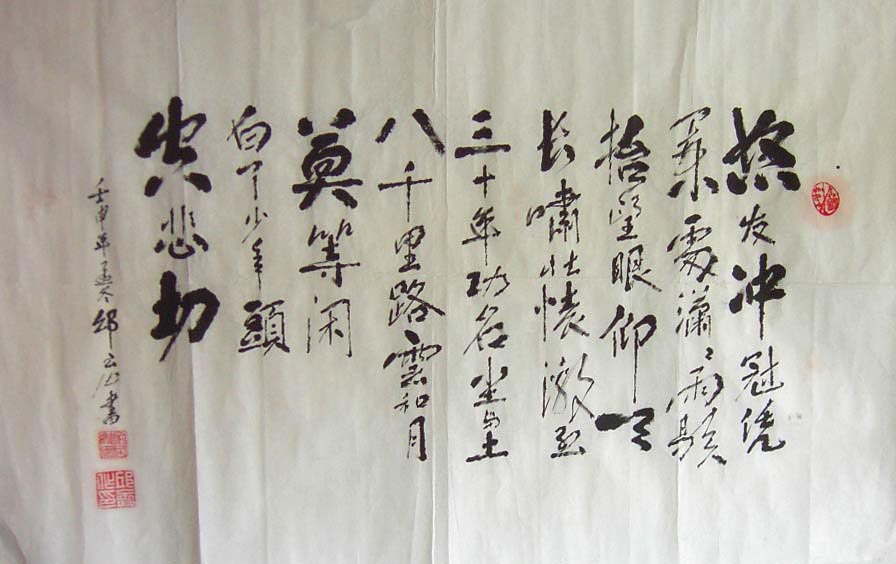 怒发冲冠凭
阑处潇潇雨歇
抬望眼仰天
长啸壮怀激烈
三十年功名尘与土
八千里路雲和月
莫等闲
白了少年頭
空悲切
壬申年孟冬邱 书